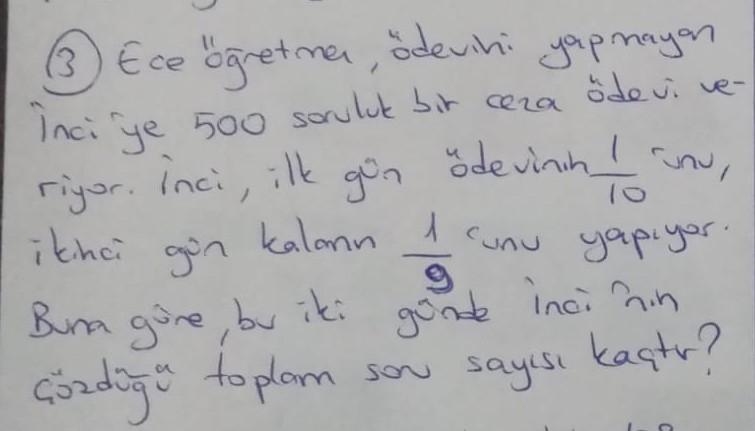 ③ Ece öğretmen, ödevini yapmayan
İnci'ye 500 soruluk bir ceza ödevi ve-
riyor. İnci, ilk gün ödevinin 1/10 'unu,
ikinci gün kalanın 1/9 'unu yapıyor.
Buna göre, bu iki günde İnci'nin
çözdüğü toplam soru sayısı kaçtır?